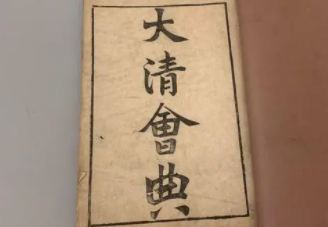 大清會典